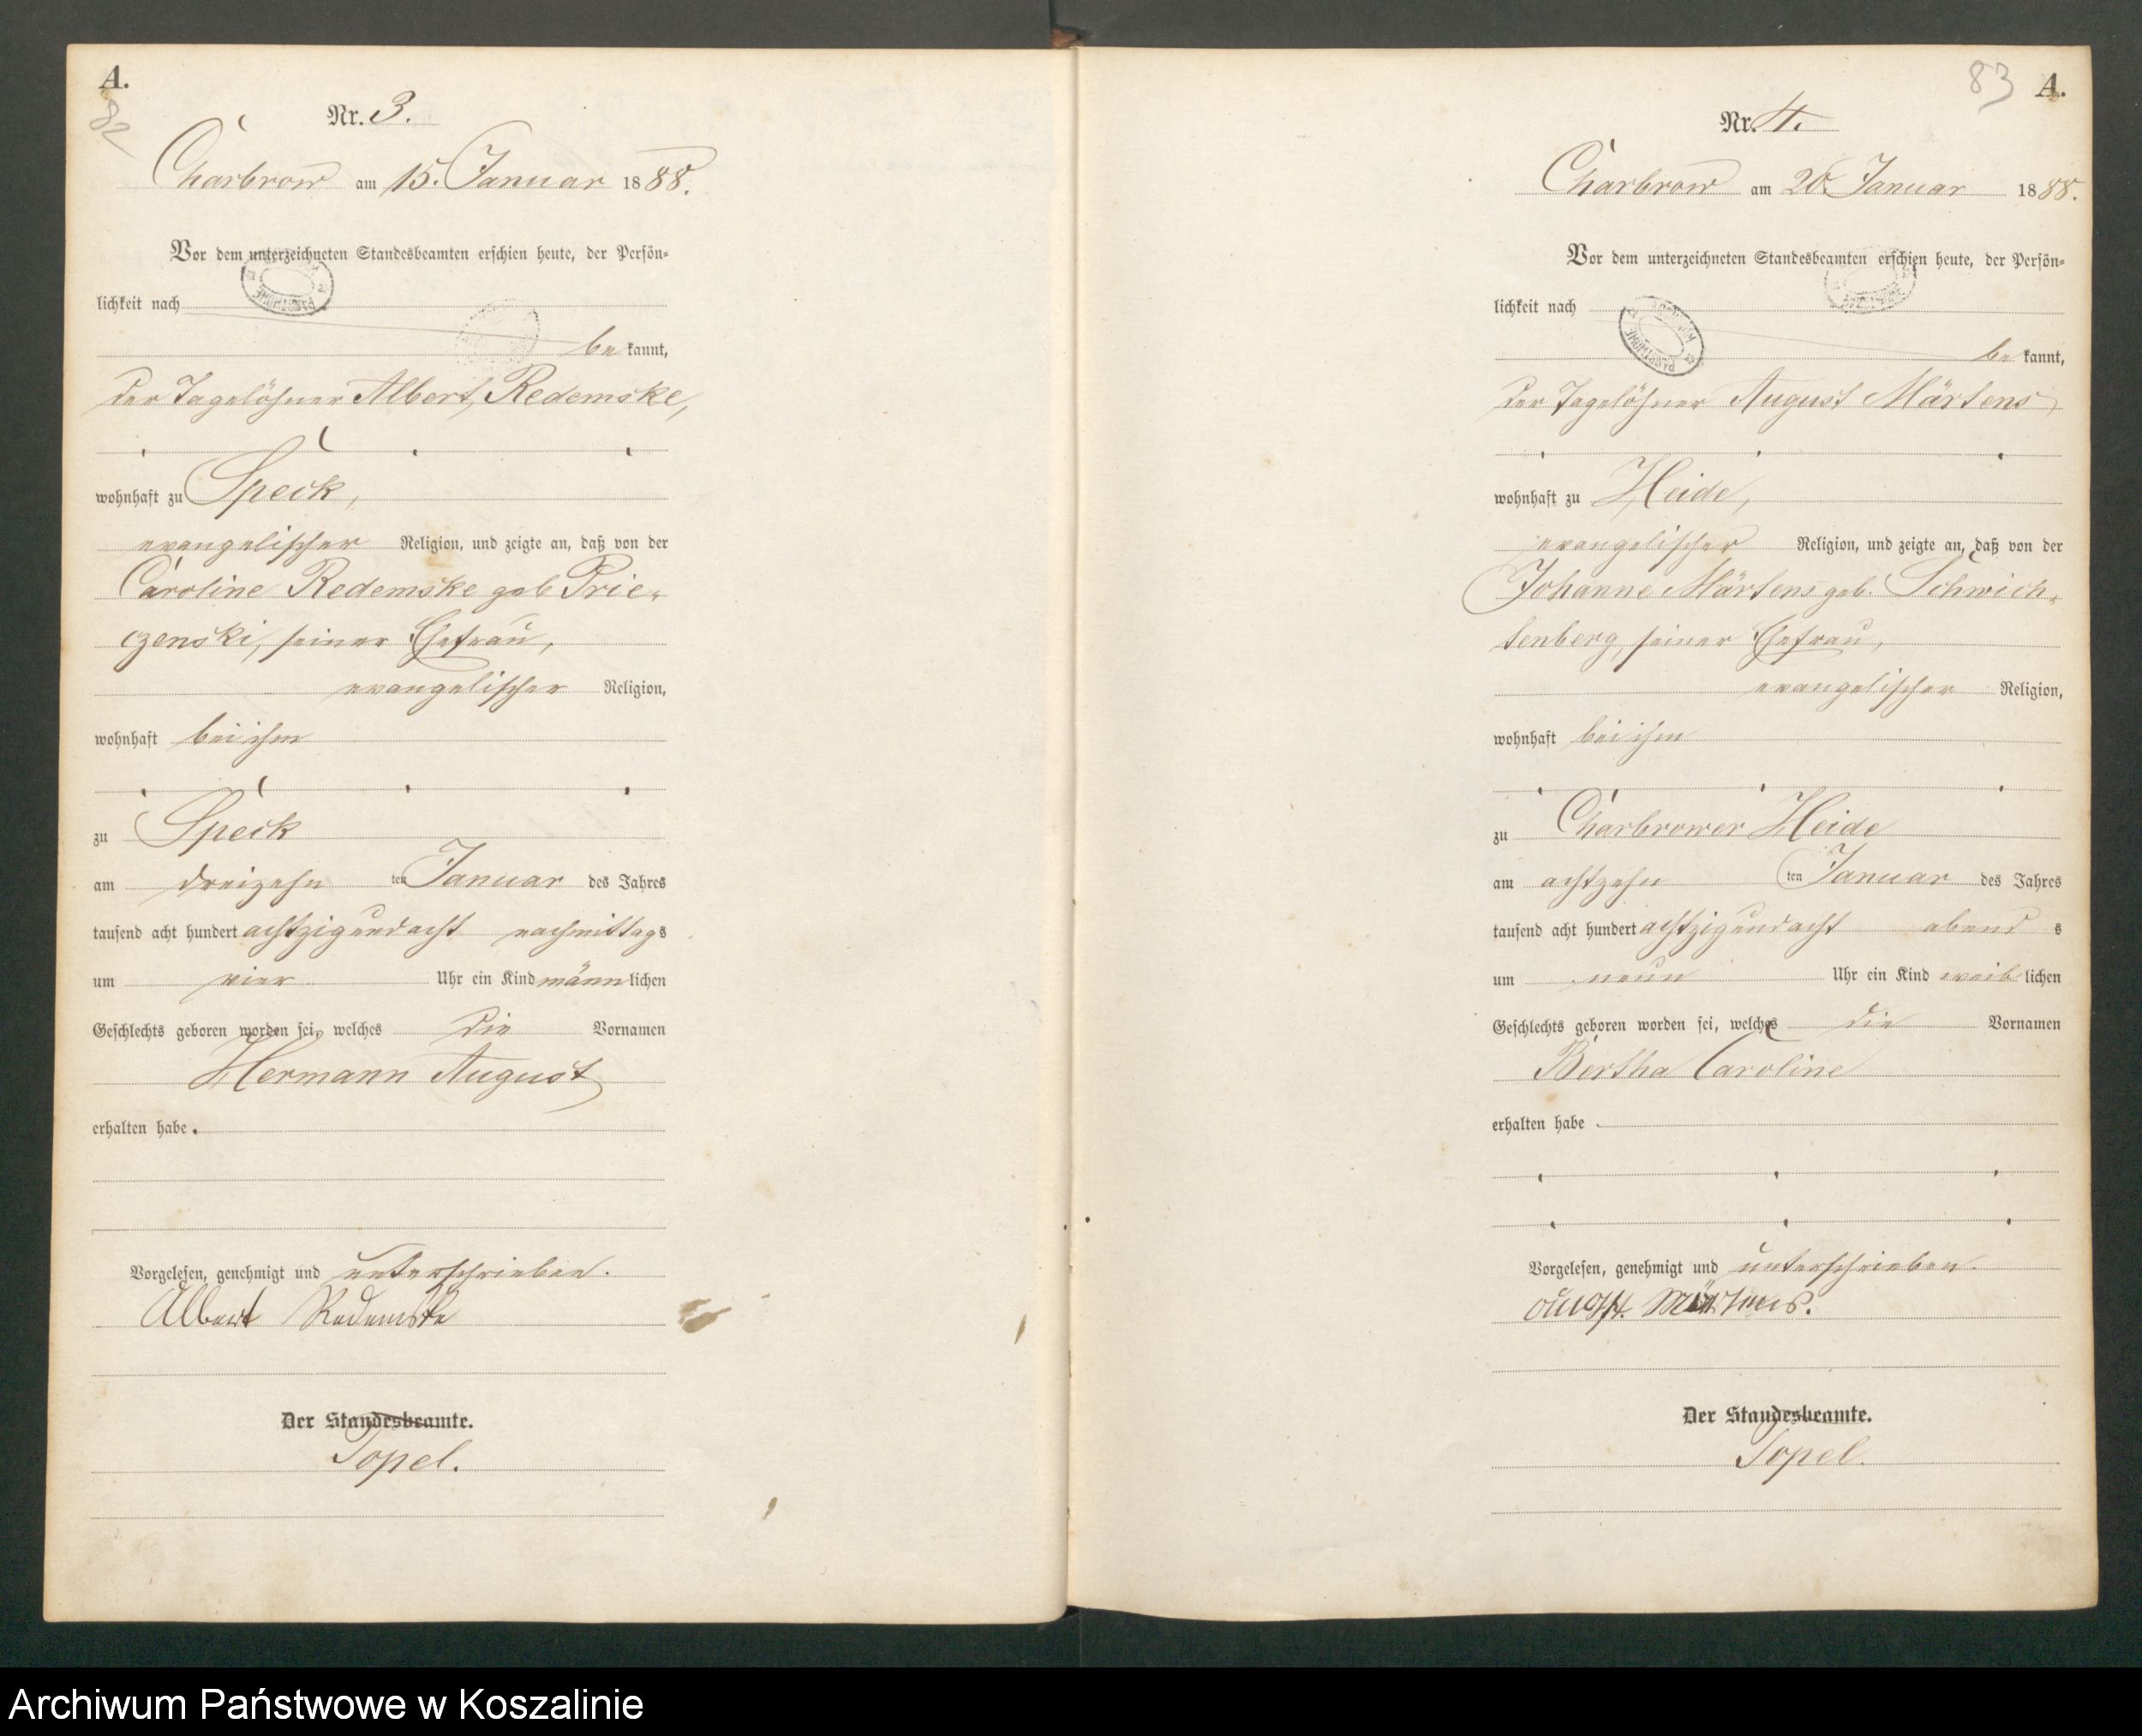 A.
82
Nr. 3.
Charbrow am 15. Januar 1888.
Vor dem unterzeichneten Standesbeamten erschien heute, der Persön-
lichkeit nach
be kannt,
der Tagelöhner Albert Redemske,
wohnhaft zu Speck,
evangelischer Religion, und zeigte an, daß von der
Caroline Redemske geb Prie-
czenski, seiner Ehefrau,
evangelischer Religion,
wohnhaft bei ihm
zu Speck
am dreizehn ten Januar des Jahres
tausend acht hundert achtzigundacht nachmittags
um vier Uhr ein Kind männlichen
Geschlechts geboren worden sei, welches die Vornamen
Hermann August
erhalten habe.
Vorgelesen, genehmigt und unterschrieben.
Albert Redemske
Der Standesbeamte.
Topel.
83 A.
Nr. 4.
Charbrow am 20. Januar 1888.
Vor dem unterzeichneten Standesbeamten erschien heute, der Persön-
lichkeit nach
be kannt,
der Tagelöhner August Märtens
wohnhaft zu Heide,
evangelischer Religion, und zeigte an, daß von der
Johanne Märtens geb. Schwich-
tenberg, seiner Ehefrau,
evangelischer Religion,
wohnhaft bei ihm
zu Charbrower Heide
am achtzehn ten Januar des Jahres
tausend acht hundert achtzigundacht abend s
um neun Uhr ein Kind weiblichen
Geschlechts geboren worden sei, welches die Vornamen
Bertha Caroline
erhalten habe.
Vorgelesen, genehmigt und unterschrieben.
Märtens.
Der Standesbeamte.
Topel.
Archiwum Państwowe w Koszalinie